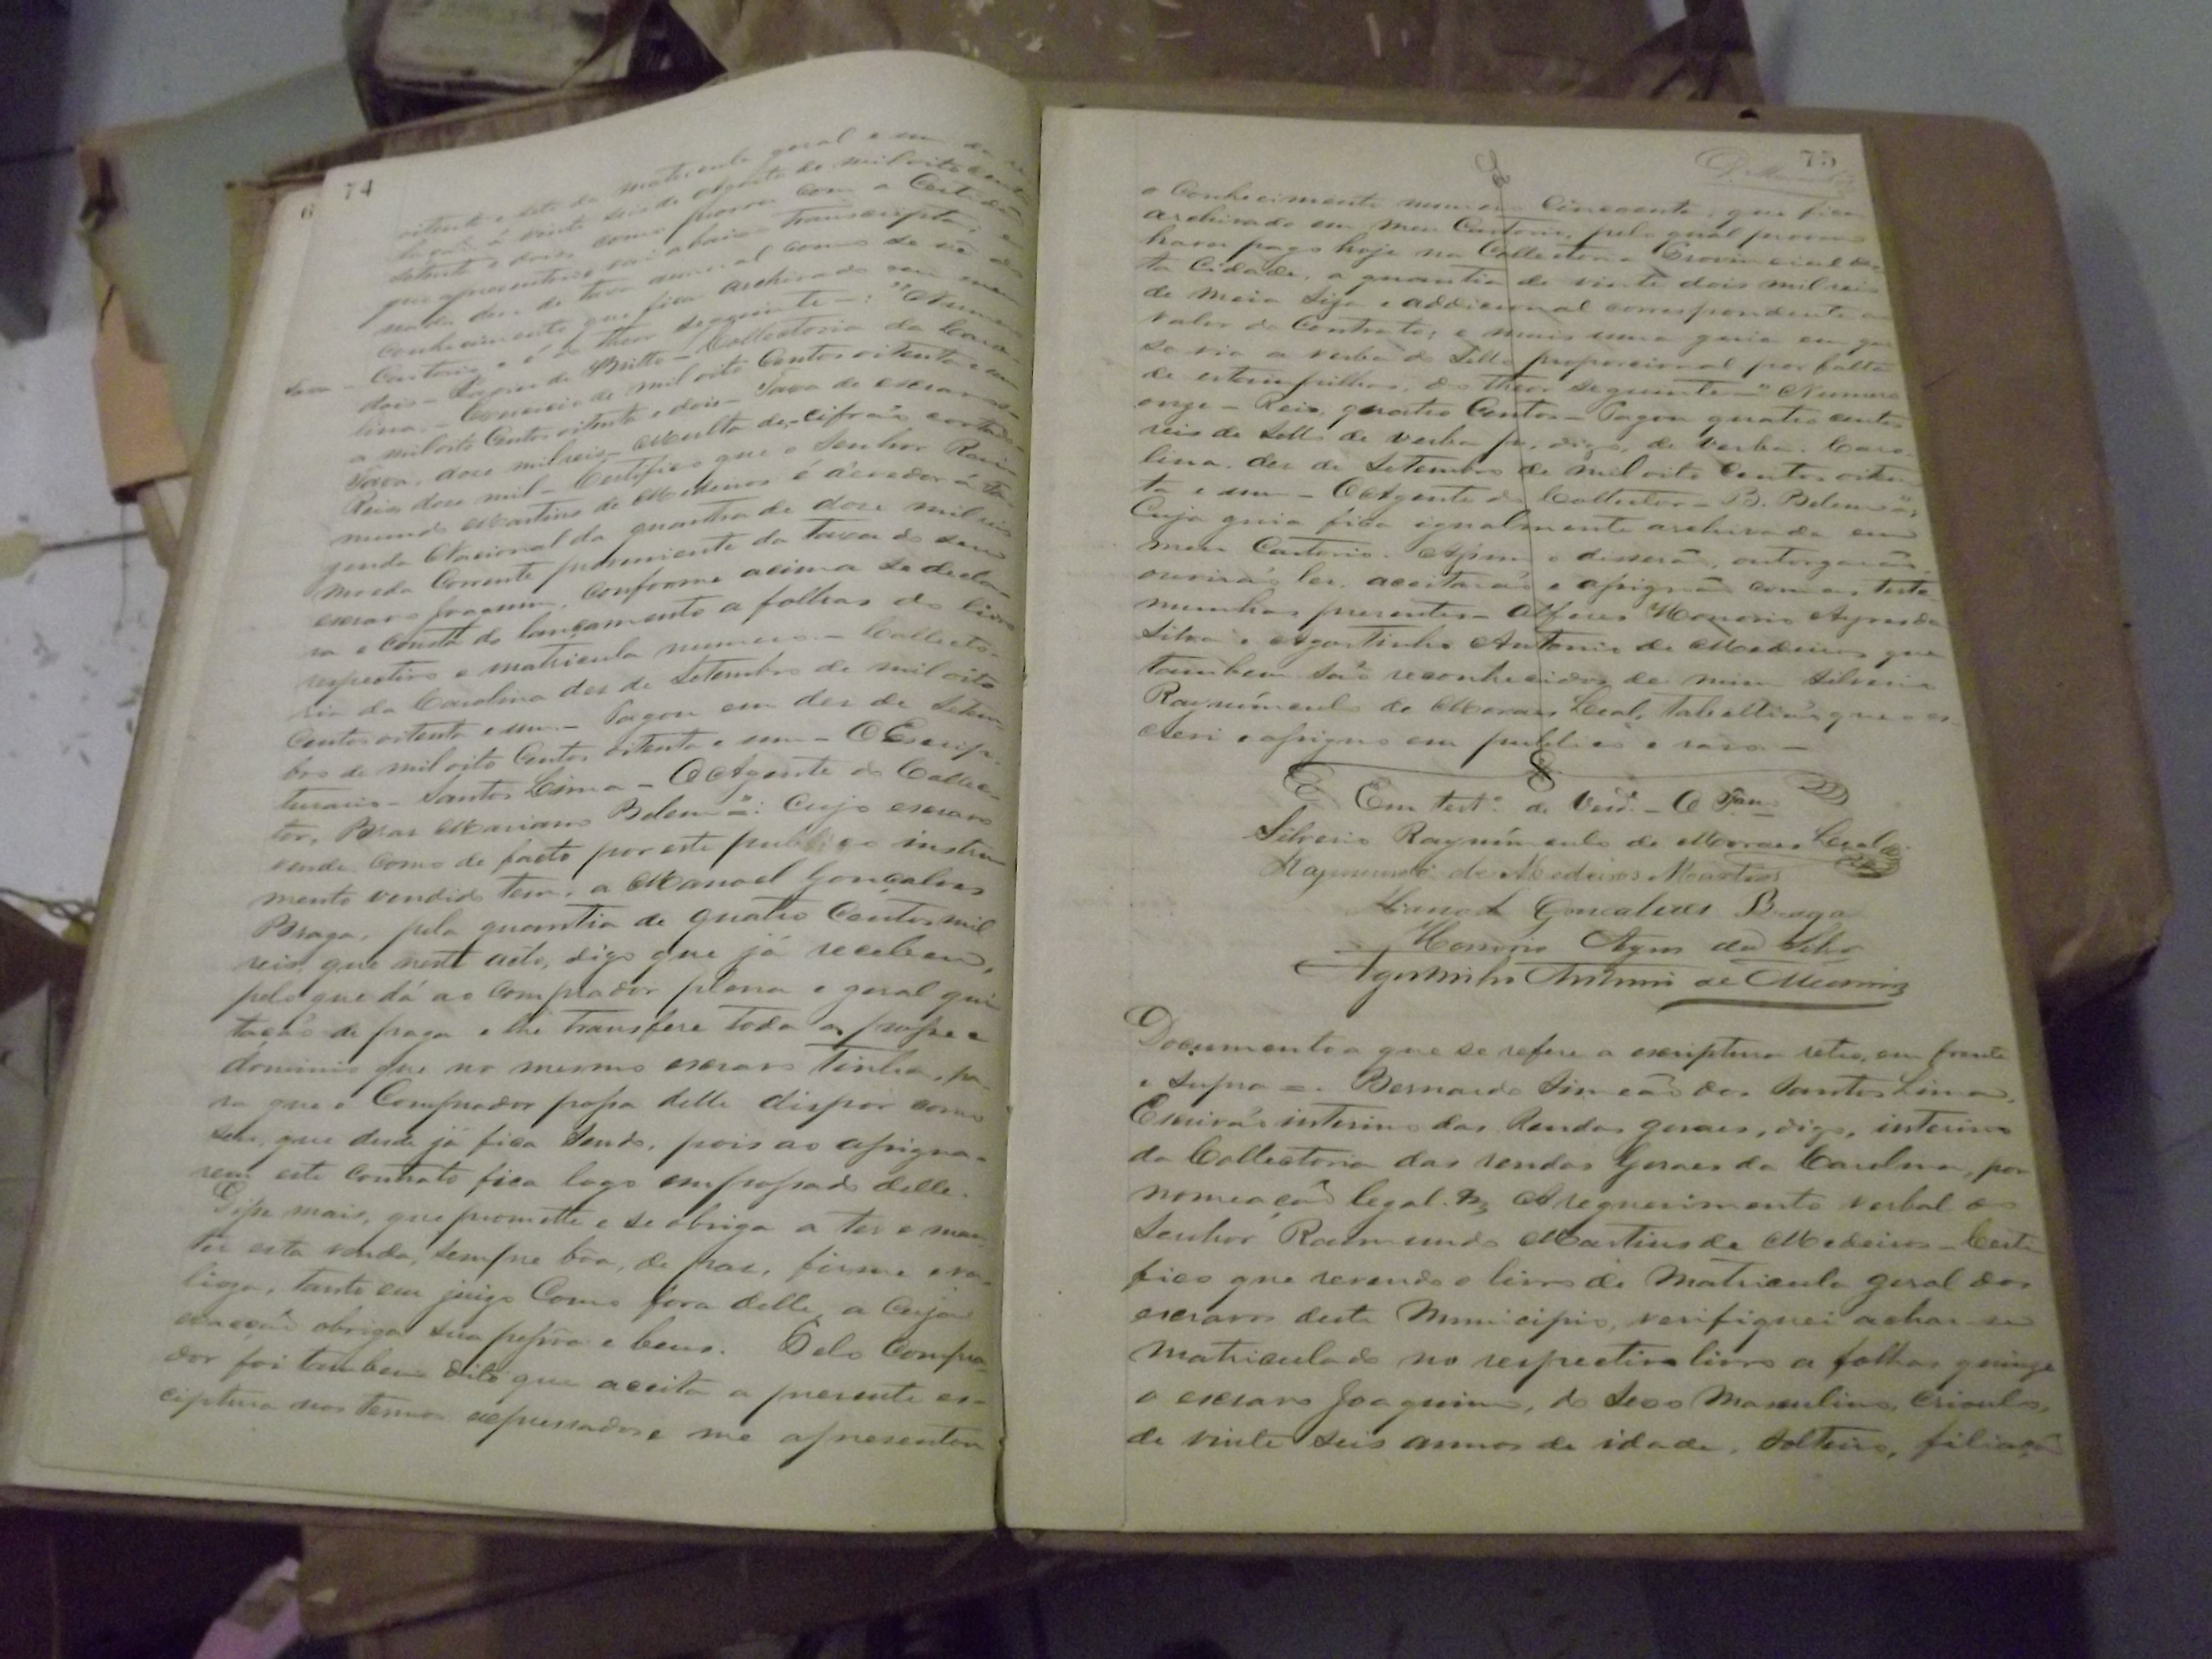 74
oitenta e sete da matricula geral e um da re
lação á vinte seis de Agosto de mil oito centos
setenta e dois, como provou com a Certidão
que apresentou e vai abaixo transcripta; e
conhecimento que fica archivado em meu
Cartorio e é do theor seguinte —: "Numero
dois — Collectoria da Caro-
lina. — Exercicio de mil oito Centos oitenta e um
a mil oito Centos oitenta e dois — Taxa de escravos —
Taxa, doze mil reis — Multa de, — cifrão cortado —
Reis doze mil — Certifico que o Senhor Ray-
mundo Martins de Medeiros é devedor á Fa-
zenda Nacional da quantia de doze mil reis
moeda Corrente proveniente da taxa do seu
escravo Joaquim, conforme acima se decla
ra e consta do lançamento a folhas do livro
respectivo e matricula numero. — Collecto-
ria da Carolina dez de Setembro de mil oito
Centos oitenta e um. — Pagou em dez de Setem-
bro de mil oito Centos oitenta e um — O Escrip-
turario — Santos Lima — O Agente do Collec-
tor, Braz Mariano Belem": Cujo escravo
vende como de facto por este publico instru
mento vendido tem, a Manoel Gonçalves
Braga, pela quantia de quatro Centos mil
reis, que neste acto, digo que já recebeu,
pelo que dá ao Comprador plena e geral qui
tação de paga e lhe transfere toda a posse e
dominio que no mesmo escravo tinha, pa-
ra que o Comprador possa delle dispor como
seu, que desde já fica sendo, pois ao assigna-
rem este contrato fica logo empossado delle.
Disse mais, que promette e se obriga a ter e man
ter esta venda, sempre bôa, de paz, firme e va-
lioza, tanto em juizo Como fora delle, a Cuja
evacção obriga sua pessôa e bens. Pelo Compra
dor foi tambem dito que aceita a presente es-
criptura nos termos expressados e me apresentou
75
o Conhecimento numero Cincoenta, que fica
archivado em meu Cartorio, pelo qual provou
haver pago hoje na Collectoria Provincial des-
ta Cidade, a quantia de vinte dois mil reis
de meia Siza e addicional correspondente ao
valor do Contrato; e mais uma guia em que
se via a verba do Sello proporcional por falta
de estampilhas, do theor seguinte — "Numero
onze — Reis, quatro Centos — Pagou quatro centos
reis de sello de verba digo, de verba. Caro-
lina, dez de Setembro de mil oito Centos oiten
ta e um — O Agente do Collector — B. Belem";
Cuja guia fica igualmente archivada em
meu Cartorio. Assim o disserão, outorgarão,
ouvirão ler, aceitarão e assignão com as teste
munhas presentes — Alferes Honorio Ayres da
Silva e Agostinho Antonio de Medeiros que
tambem são reconhecidos de mim Silverio
Raymundo de Moraes Leal, Tabellião que o es-
crevi e assigno em publico e raso. —
Em testº de Verdº — O Tam
Silverio Raymundo de Moraes Leal
Raymundo de Medeiros Martins
Manoel Gonçalves Braga
Honorio Ayres da Silva
Agostinho Antonio de Medeiros
Documento a que se refere a escriptura retro, em frente
e supra =. Bernardo Simeão dos Santos Lima,
Escrivão interino das Rendas geraes, digo, interino
da Collectoria das rendas Geraes da Carolina, por
nomeação legal. A requerimento verbal do
Senhor Raimundo Martins de Medeiros — Certi
fico que revendo o livro de Matricula geral dos
escravos deste Municipio, verifiquei achar-se
matriculado no respectivo livro a folhas quinze
o escravo Joaquim, do sexo Masculino, crioulo,
de vinte seis annos de idade, solteiro, filiação